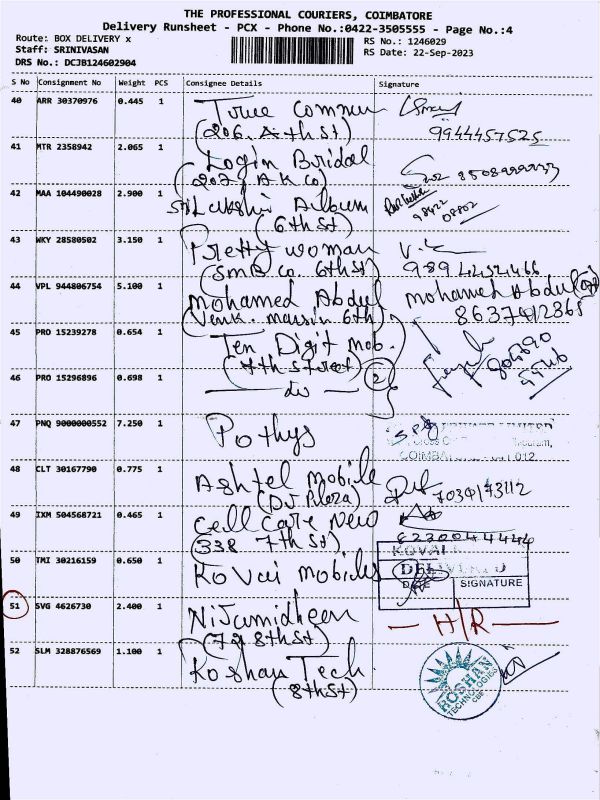 THE PROFESSIONAL COURIERS, COIMBATORE
Delivery Runsheet - PCX - Phone No.:0422-3505555 - Page No.:4
Route: BOX DELIVERY x
RS No.: 1246029
Staff: SRINIVASAN
RS Date: 22-Sep-2023
DRS No.: DCJB124602904
S No Consignment No Weight PCS Consignee Details Signature
40 ARR 30370976 0.445 1 True Commun
(206. A 4th St) 9944457525
41 MTR 2358942 2.065 1 Login Bridal
(207, A K Co) 8508999933
42 MAA 104490028 2.900 1 Sri Lakshmi Album
(6th St)
43 WKY 28580502 3.150 1 Pretty woman
(SMB Co. 6th St) 9894454466
44 VPL 944806754 5.100 1 Mohamed Abdul Mohamed Abdul
(Venk. 6th)
45 PRO 15239278 0.654 1 Ten Digit Mob.
(7th Street)
46 PRO 15296896 0.698 1 — do — 2
47 PNQ 9000000552 7.250 1 Pothys
COIMBATORE 012.
48 CLT 30167790 0.775 1 Ashtel mobile
(DJ Plaza)
49 IXM 504568721 0.465 1 Cell Care New
(338 7th St)
50 TMI 30216159 0.650 1 Kovai mobiles KOVAI
DELIVERED
DATE SIGNATURE
51 SVG 4626730 2.400 1 Nijamidheen — H/R —
(72 8th St)
52 SLM 328876569 1.100 1 Roshan Tech
(8th St)
ROSHAN TECHNOLOGIES CBE